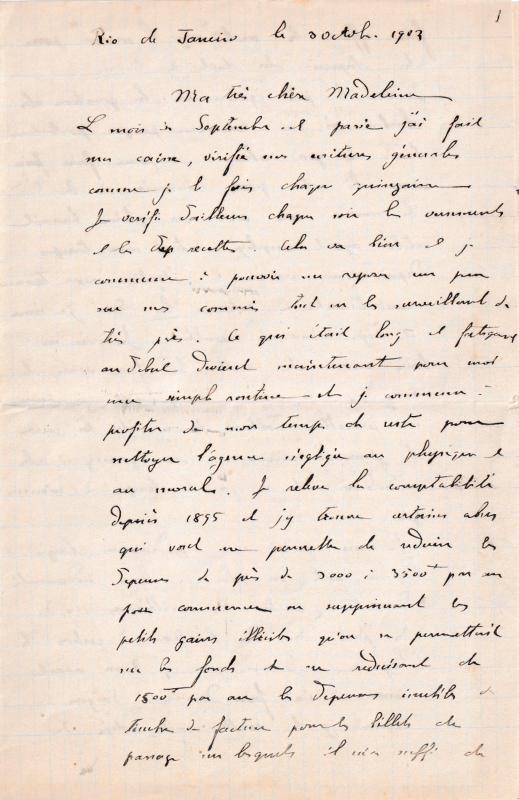 1
Rio de Janeiro le 3 Octob. 1903
Ma très chère Madeleine
Le mois de Septembre est passé j'ai fait
ma caisse, vérifié mes écritures générales
comme je le fais chaque quinzaine
Je vérifie d'ailleurs chaque soir les versements
et les Dep recettes. Cela va bien et je
commence à pouvoir me reposer un peu
sur mes commis tout en les surveillant de
très près. Ce qui était long et fatigant
au début devient maintenant pour moi
une simple routine et je commence à
profiter de mon temps de reste pour
nettoyer l'agence négligée au physique et
au morale. Je relève la comptabilité
depuis 1895 et j'y trouve certains abus
qui vont me permettre de réduire les
dépenses de près de 3000 à 3500f par an
pour commencer en supprimant les
petits gains illicites qu'on se permettait
sur les fonds et en réduisant de
1800f par an les dépenses inutiles de
timbre de facture pour les billets de
passage sur lesquels il m'a suffi de